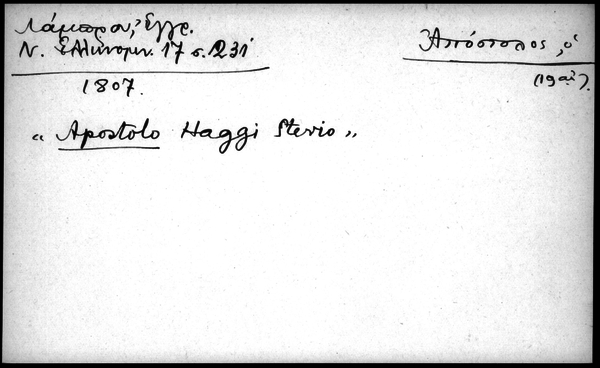 Λάμπρου, Ἔγγρ.
Ν. Ἑλληνομν. 17 σ. 231
1807.
Ἀπόστολος, ὁ
(19 αἰ.)
“ Apostolo Haggi Sterio „